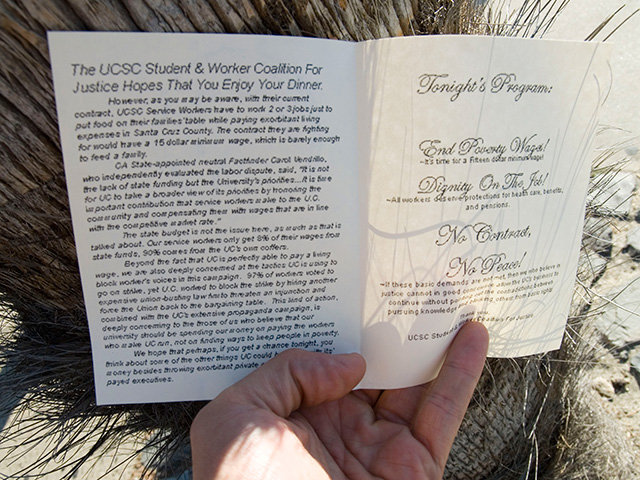 The UCSC Student & Worker Coalition For
Justice Hopes That You Enjoy Your Dinner.
However, as you may be aware, with their current
contract, UCSC Service Workers have to work 2 or 3 jobs just to
put food on their families' table while paying exorbitant living
expenses in Santa Cruz County. The contract they are fighting
for would have a 15 dollar minimum wage, which is barely enough
to feed a family.
CA State-appointed neutral Factfinder Carol Vendrillo,
who independently evaluated the labor dispute, said, "It is not
the lack of state funding but the University's priorities...It is time
for UC to take a broader view of its priorities by honoring the
important contribution that service workers make to the U.C.
community and compensating them with wages that are in line
with the competitive market rate."
The state budget is not the issue here, as much as that is
talked about. Our service workers only get 8% of their wages from
state funds, 90% comes from the UC's own coffers.
Beyond the fact that UC is perfectly able to pay a living
wage, we are also deeply concerned at the tactics UC is using to
block worker's voices in this campaign. 97% of workers voted to
go on strike, yet U.C. worked to block the strike by hiring another
expensive union-busting law firm to threaten an injunction and
force the Union back to the bargaining table. This kind of action,
combined with the UC's extensive propaganda campaign, is
deeply concerning to the those of us who believe that our
university should be spending our money on paying the workers
who make UC run, not on finding ways to keep people in poverty.
We hope that perhaps, if you get a chance tonight, you
think about some of the other things UC could be
money besides throwing exorbitant private
payed executives.
Tonight's Program:
End Poverty Wages!
~It's time for a Fifteen dollar minimum wage!
Dignity On The Job!
~All workers deserve protections for health care, benefits,
and pensions.
No Contract,
No Peace!
~If these basic demands are not met, then we who believe in
justice cannot in good conscience allow the UCS business to
continue without pointing out the connections between
pursuing knowledge and basic rights.
Thank you,
UCSC Student & Coalition For Justice